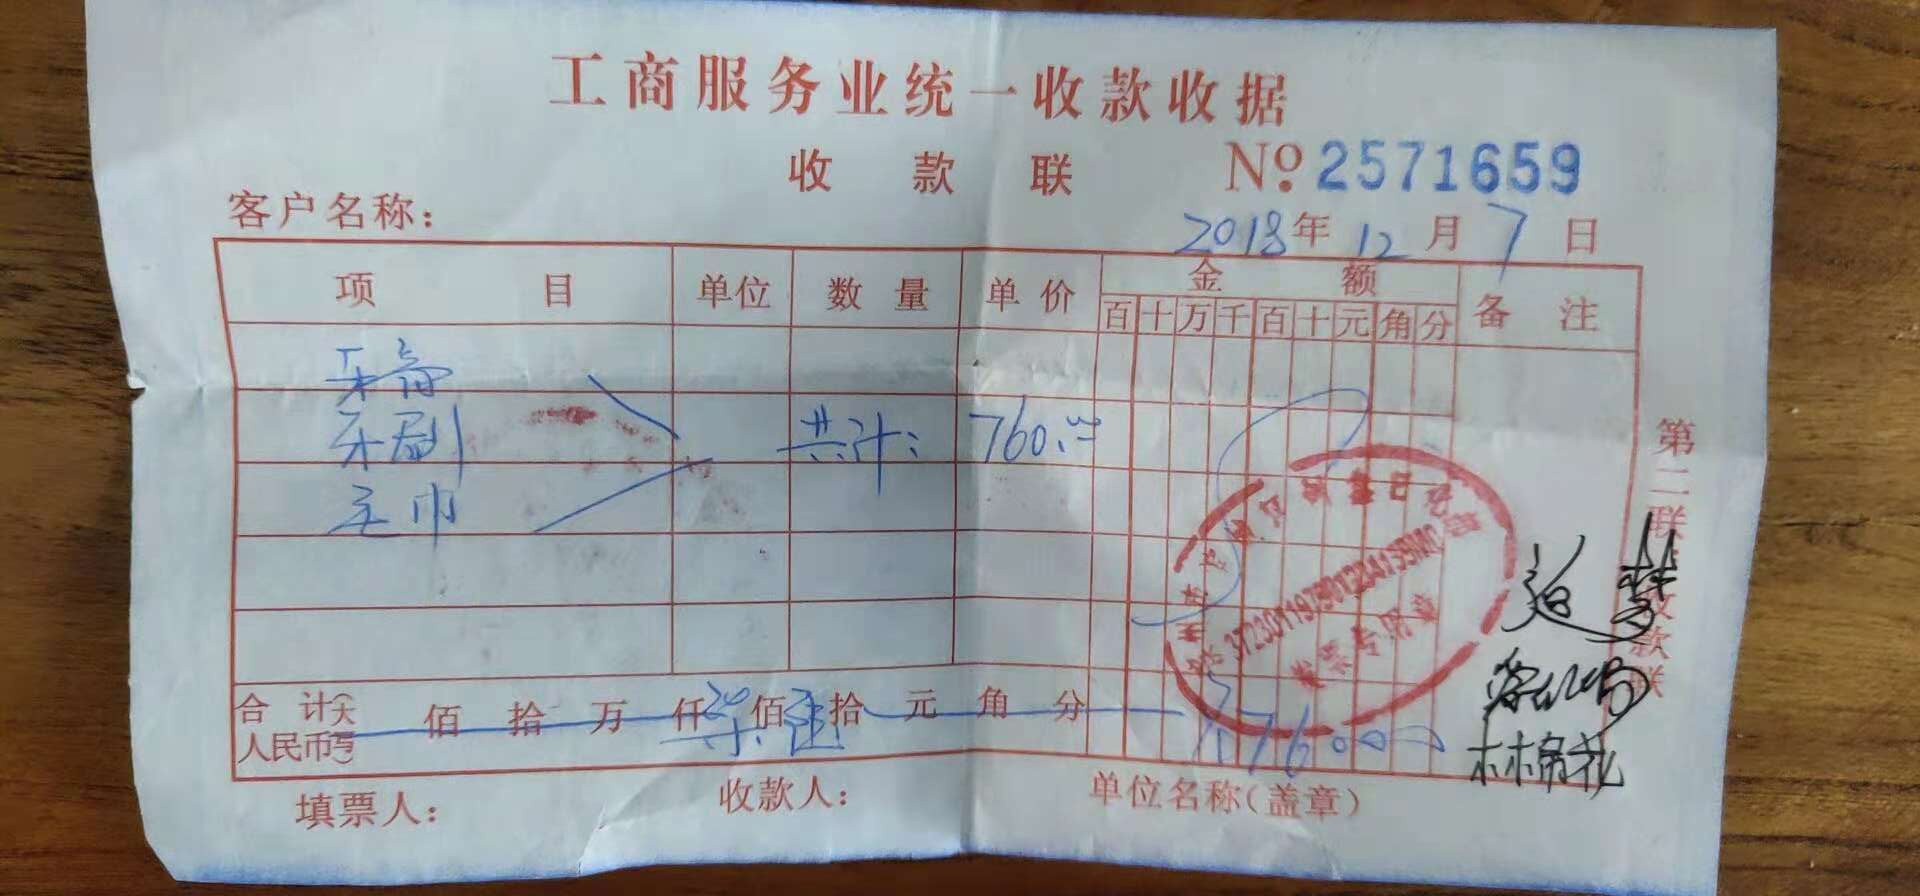 工商服务业统一收款收据
收款联 № 2571659
客户名称： 2018年12月7日
项目 单位 数量 单价 金额 备注
百十万千百十元角分
牙膏
牙刷 共计： 760.00
毛巾
合计(大写)人民币 佰 拾 万 仟 柒佰 陆拾 元 角 分 ¥76000
填票人： 收款人： 单位名称(盖章)
第二联 收款联
发票专用章
林棉花